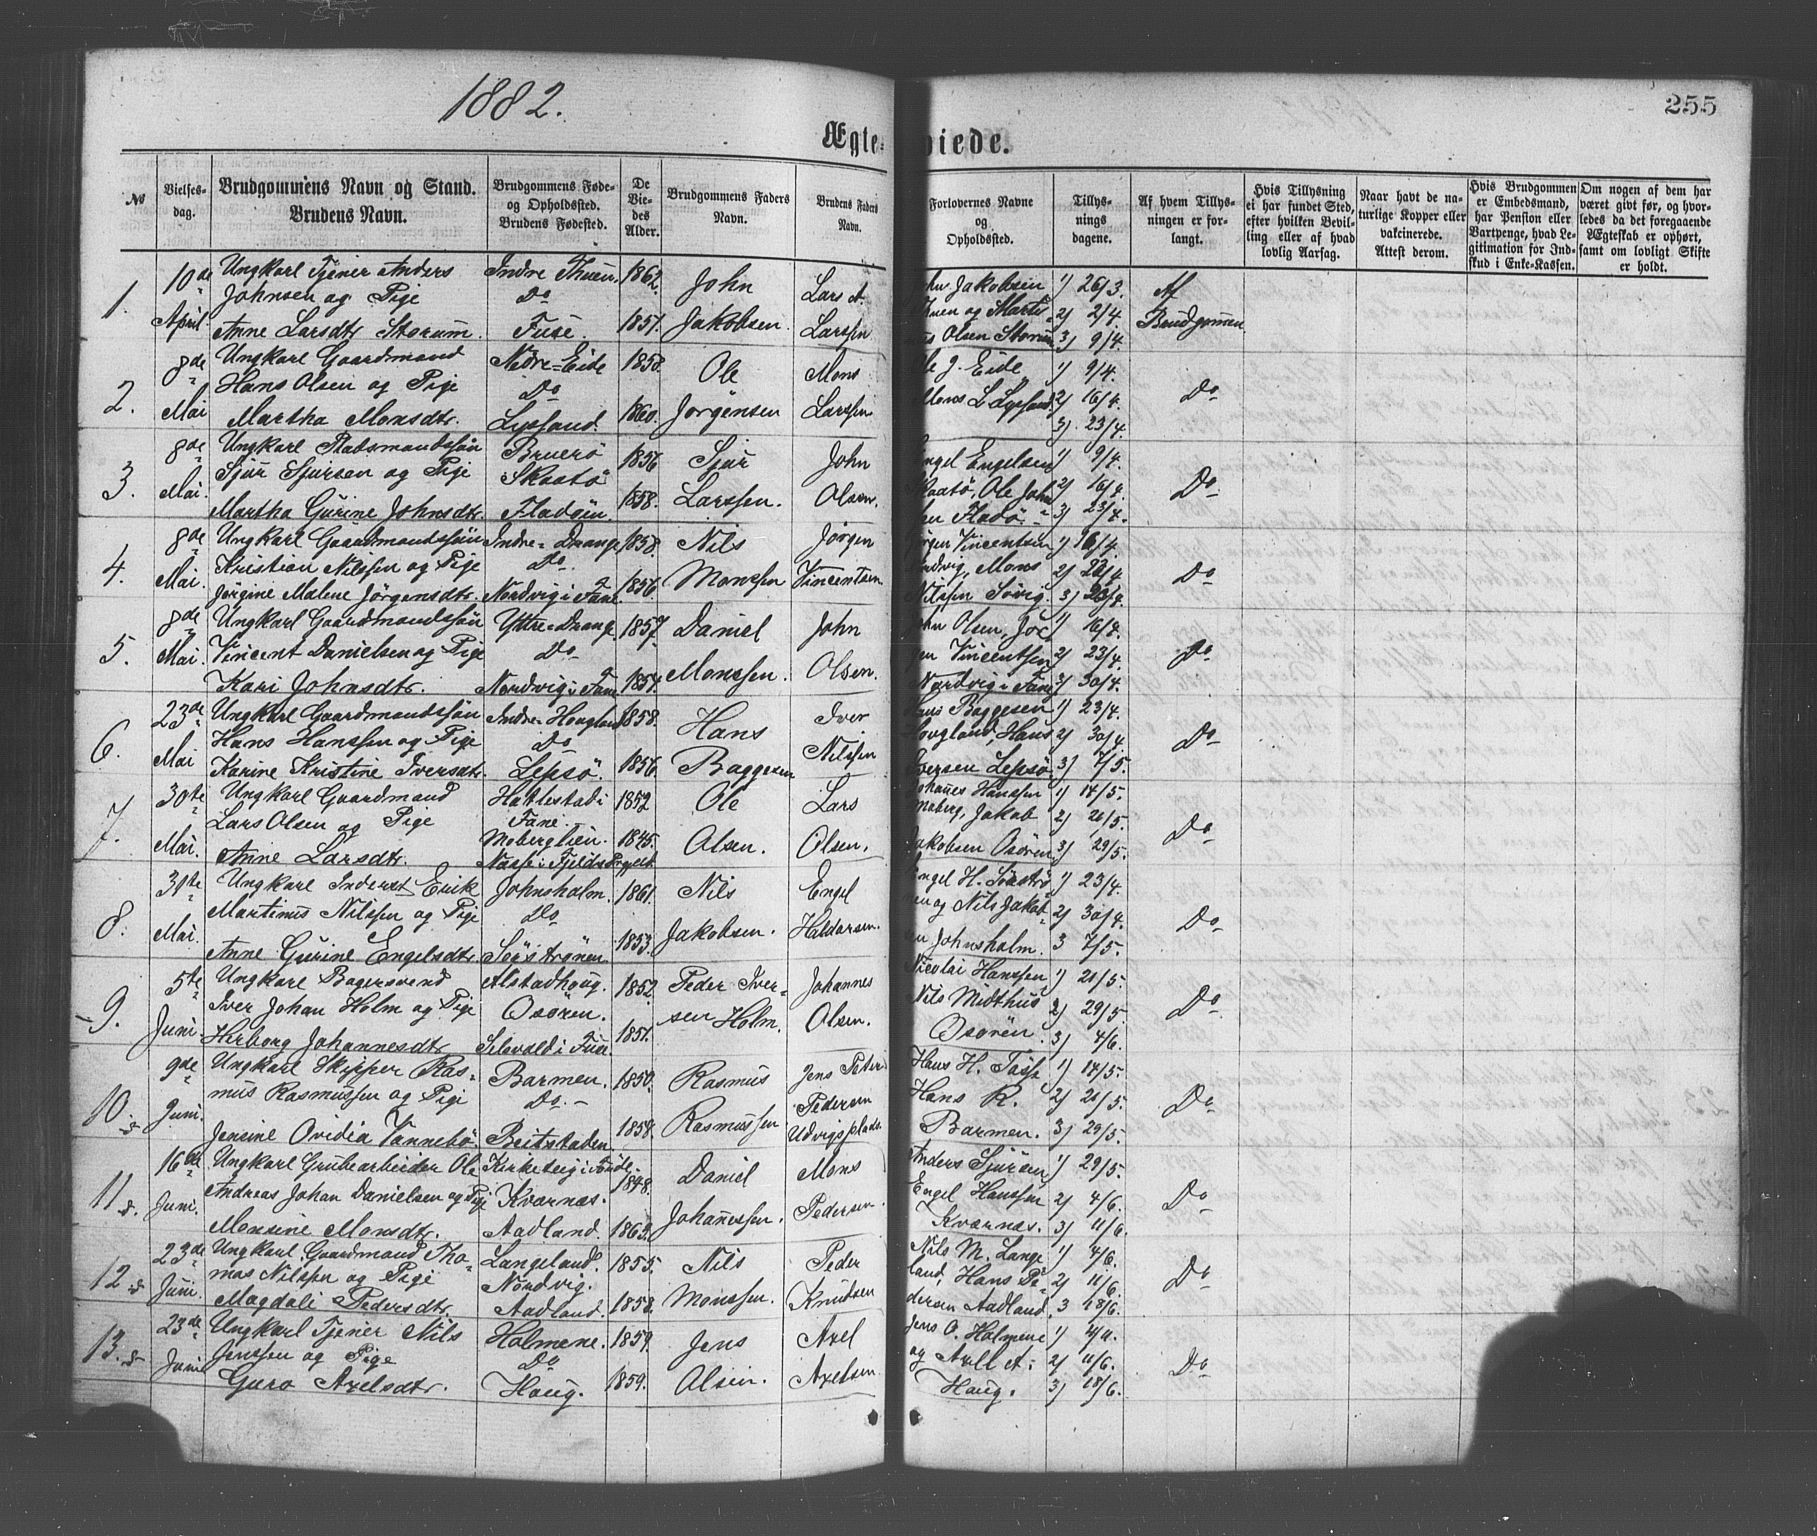 1882.
255
Ægte-viede.
№
Vielses-dag.
Brudgommens Navn og Stand.
Brudens Navn.
Brudgommens Føde-
og Opholdssted.
Brudens Fødested.
De
Vie-
des
Alder.
Brudgommens Faders
Navn.
Brudens Faders
Navn.
Forlovernes Navne
og
Opholdssted.
Tillys-
nings
dagene.
Af hvem Tillys-
ningen er for-
langt.
Hvis Tillysning
ei har fundet Sted,
efter hvilken Bevil-
ling eller af hvad
lovlig Aarsag.
Naar havt de na-
turlige Kopper eller
vakcinerede.
Attest derom.
Hvis Brudgommen
er Embedsmand,
har Pension eller
Vartpenge, hvad Le-
gitimation for Ind-
skud i Enke-Kassen.
Om nogen af dem har
været givt før, og hvor-
ledes da det foregaaende
Ægteskab er ophørt,
samt om lovligt Skifte
er holdt.
10de Ungkarl Tjener Anders Indre Thuen 1862. John Lars A. Jakobsen 1) 26/3. Af
1. Johnsen og Pige Do Thuen og Marti- 2) 2/4. Brudgommen
April. Anne Larsdtr. Storum. Fuse. 1857. Jakobsen. Larssen Olsen Storum 3) 9/4.
8de Ungkarl Gaardmand Nedre-Eide 1858. Ole Mons J. Eide, 1) 9/4.
2. Hans Olsen og Pige Do Mons L. Lyssand 2) 16/4. Do
Mai Martha Monsdtr. Lyssand. 1860. Jørgensen Larssen 3) 23/4.
8de Ungkarl 1856 Sjur John Engel Engelsen 1) 9/4.
3. Sjur Sjursen og Pige Skaatø Skaatø, Ole John 2) 16/4. Do
Mai. Martha Gurine Johnsdtr. Fladøen. 1858. Larssen. Olsen. sen Fladø. 3) 23/4.
8de Ungkarl Gaardmandssøn Indre-Drange 1858. Nils Jørgen Jørgen Vincentsen 1) 16/4.
4. Kristian Nilssen og Pige Do Nordvig, Mons 2) 23/4 Do
Mai. Jørgine Malene Jørgensdtr. Nordvig i Fane. 1856. Monssen Vincentsen Nilssen Søvig. 3)
8de Ungkarl Gaardmandssøn Yttre-Drange 1857. Daniel John John Olsen, Jør- 1) 16/4.
5. Vincent Danielsen og Pige Do gen Vincentsen 2) 23/4. Do
Mai. Kari Johnsdtr. Nordvig i Fane 1857. Monssen. Olsen. Nordvig i Fane 3) 30/4.
23de Ungkarl Gaardmandssøn Indre-Hougland 1858. Hans Iver Hans Baggesen 1) 23/4.
6. Hans Hanssen og Pige Do Hovgland, Hans 2) 30/4. Do
Mai Karine Kristine Iversdtr. Lepsø. 1856. Baggesen Nilssen Iversen Lepsø 3) 7/5.
30te Ungkarl Gaardmand Hatlestad i 1852 Ole Lars Johannes Hanssen 1) 14/5.
7. Lars Olsen og Pige Fane. Moberg, Jakob 2) 21/5. Do
Mai. Anne Larsdtr. Moberglien. 1845. Olsen. Olsen. Jakobsen Osøren. 3) 29/5.
31te Ungkarl Inderst Erik Johnsholm. 1861. Nils Engel Engel H. 1) 23/4.
8. Martinus Nilssen og Pige Do og Nils Jakob- 2) 30/4. Do
Mai. Anne Gurine Engelsdtr. Søstrønen. 1853. Jakobsen. Haldorsen. sen Johnsholm. 3 7/5.
5te Ungkarl Bagersvend Alstadhoug. 1852. Peder Iver- Johannes Nicolai Hanssen 1) 21/5.
9. Iver Johan Holm og Pige Osøren. sen Holm. Olsen. Nils Midthus 2) 29/5. Do
Juni Herborg Johannesdtr i Fuse. 1851. Osøren 3) 4/6.
9de Ungkarl Skipper Ras- Barmen. 1850. Rasmus Jens Peter Hans H. 1) 14/5.
10. mus Rasmussen og Pige Do.- Pedersen Hans R. 2) 21/5. Do
Juni. Jensine Ovidia Vannebø. Britstaden. 1858. Rasmussen Barmen. 3) 29/5.
16de Ungkarl Grubearbeider Ole Kirketeig i 1848. Daniel Mons Anders Sjursen 1) 29/5.
11. Andreas Johan Danielsen og Pige Kvarnæs. Engel Hanssen 2) 4/6. Do
Juni. Monsine Monsdtr. Aadland. 1863. Johannessen. Pedersen. Kværnæs. 3) 11/6.
23de Ungkarl Gaardmand Tho- Langeland. 1855. Nils Peder Nils M. Lange 1) 4/6.
12. mas Nilssen og Pige Nordvig. land, Hans Pe- 2) 11/6. Do
Juni. Magdali Pedersdtr. Aadland. 1858. Monssen. Knudsen dersen Aadland. 3 18/6.
23de Ungkarl Tjener Nils Holmene. 1859. Jens Axel Jens O. Holmene 1)
13. Jenssen og Pige Do og Axel A. 2) 11/6. Do
Juni Guro Axelsdtr. Haug. 1859. Olsen. Axelsen Haug. 3) 18/6.